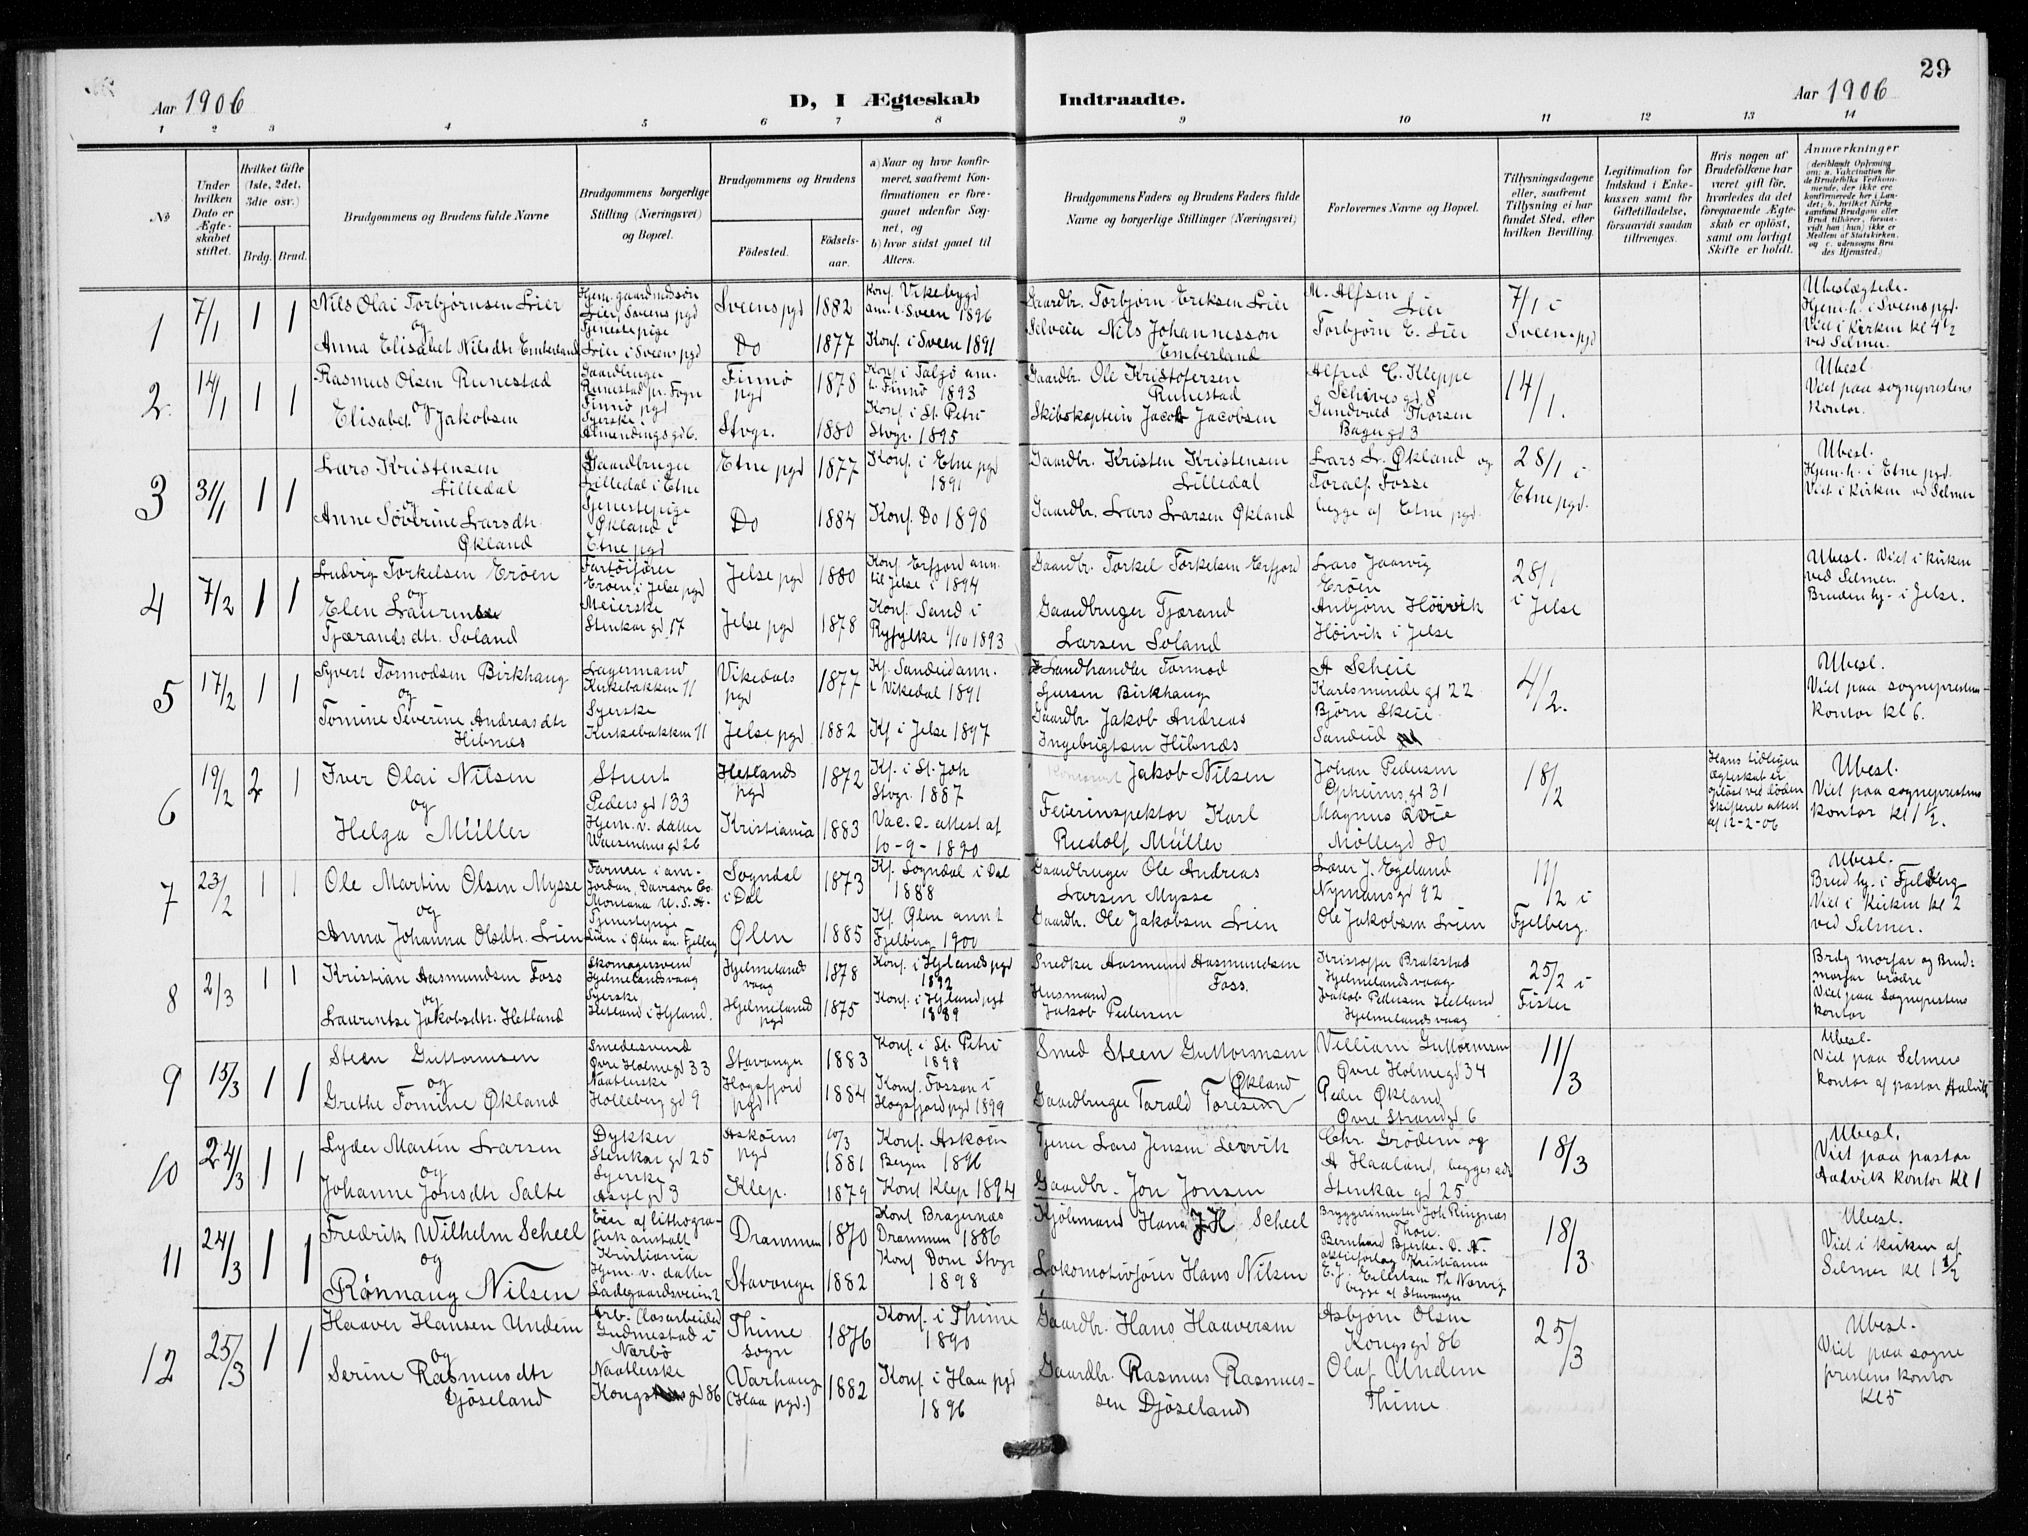 29
Aar 1906
D, I Ægteskab
Indtraadte.
Aar 1906
1 2 3 4 5 6 7 8 9 10 11 12 13 14
№
Under hvilken Dato er Ægteskabet stiftet.
Hvilket Gifte (1ste, 2det, 3die osv.)
Brdg. Brud.
Brudgommens og Brudens fulde Navne
Brudgommens borgerlige Stilling (Næringsvei) og Bopæl.
Brudgommens og Brudens
Fødested.
Fødselsaar.
a) Naar og hvor konfirmeret, saafremt Konfirmationen er foregaaet udenfor Sognet, og
b) hvor sidst gaaet til Alters.
Brudgommens Faders og Brudens Faders fulde Navne og borgerlige Stillinger (Næringsvei)
Forlovernes Navne og Bopæl.
Tillysningsdagene eller, saafremt Tillysning ei har fundet Sted, efter hvilken Bevilling.
Legitimation for Indskud i Enkekassen samt for Giftetilladelse, forsaavidt saadan tiltrænges.
Hvis nogen af Brudefolkene har været gift før, hvorledes da det foregaaende Ægteskab er opløst, samt om lovligt Skifte er holdt.
Anmærkninger
(deriblandt Oplysning om: a. Vakcination for de Brudefolks Vedkommende, der ikke ere konfirmerede her i Landet; b. hvilket Kirkesamfund Brudgom eller Brud tilhører, forsaavidt han (hun) ikke er Medlem af Statskirken, og c. udensogns Brudes Hjemsted.)
1
7/1
1 1
Nils Olai Torbjørnsen Lier
og
Anna Elisabet Nilsdtr Emberland
Hjem. gaardmdsøn
Lier, Sveens pgd
Tjenestepige
Lier i Sveens pgd
Sveens pgd 1882
Do 1877
Konf. Vikebygd
an. t. Sveen 1896
Konf. i Sveen 1891
Gaardbr. Torbjørn Eriksen Lier
Selveier Nils Johannesson
Emberland
M. Alfsen
Lier
Torbjørn E. Lier
7/1 i
Sveen pgd
Ubeslægtede.
Hjem. h. i Sveens pgd.
Viet i Kirken kl 4 1/2
ved Selmer.
2
14/1
1 1
Rasmus Olsen Runestad
og
Elisabet Jakobsen
Gaardbruger
Runestad pr. Fogn
Finnø pgd
Syerske
Almendings gd 6.
Finnø
pgd
1878
Stvgr. 1880
Konf i Talgø an.
t. Finnø 1893
Konf. i St. Petri
Stvgr. 1895
Gaardbr. Ole Kristofersen
Runestad
Skibskaptein Jacob Jacobsen
Alfred C. Kleppe
Schives gd 8
Gundvald Thorsen
Bager gd 3
14/1.
Ubesl
Viet paa sogneprestens
Kontor.
3
31/1
1 1
Lars Kristensen
Lilledal
og
Anne Søverine Larsdtr.
Økland
Gaardbruger
Lilledal i Etne
Tjenestepige
Økland i
Etne pgd
Etne pgd 1877
Do 1884
Konf. i Etne pgd
1891
Konf. Do 1898
Gaardbr. Kristen Kristensen
Lilledal
Gaardbr. Lars Larsen Økland
Lars L. Økland og
Toralf Fosse
begge af Etne pgd.
28/1 i
Etne pgd.
Ubesl.
Hjem. h. i Etne pgd.
Viet i Kirken ved Selmer
4
7/2
1 1
Ludvig Torkelsen Erøen
og
Elen Laurense
Tjærandsdtr. Soland
Fartøifører
Erøen i Jelse pgd
Meierske
Stenkar gd 17
Jelse pgd 1880
Jelse pgd 1878
Konf. Erfjord ann.
til Jelse i 1894
Konf. Sand i
Ryfylke 1/10 1893
Gaardbr. Torkel Torkelsen Erfjord
Gaardbruger Tjærand
Larsen Soland
Lars Jaarvig
Erøen
Anbjørn Høivik
Høivik i Jelse
28/1
i Jelse
Ubesl. Viet i Kirken
ved Selmer.
Bruden hj. i Jelse.
5
17/2
1 1
Syvert Tormodsen Birkhaug
og
Tomine Severine Andreasdtr
Hibnæs
Lagermand
Kirkebakken 11
Syerske
Kirkebakken 11
Vikedals
pgd
1877
Jelse pgd 1882
Kf. Sandeid ann.
i Vikedal 1891
Kf i Jelse 1897
Landhandler Tormod
Iversen Birkhaug
Gaardbr. Jakob Andreas
Ingebrigtsen Hibnæs
A Scheie
Karlsminde gd 22
Bjørn Skeie
Sandeid
4/2.
Ubesl.
Viet paa sogneprestens
kontor kl 6.
6
19/2
2 1
Iver Olai Nilsen
og
Helga Müller
Stuert
Peders gd 133
Hjem. v. datter
Waisenhus gd 26
Hetlands
pgd
1872
Kristiania 1883
Kf. i St. Joh
Stvgr. 1887
Vac. o. attest af
10-9-1890
Jakob Nilsen
Feierinspektør Karl
Rudolf Müller
Johan Pedersen
Opheims gd 31
Magnus
Møllegd 80
18/2
Hans tidligere
Ægteskab er
opløst ved døden
Skifteret attest
af 12-2-06
Ubesl.
Viet paa sogneprestens
kontor kl 1 1/2.
7
23/2
1 1
Ole Martin Olsen Mysse
og
Anna Johanna Olsdtr. Lien
Farmer i am-
Jordan, Dawson Co.
Montana U.S.A.
Tjenestepige
Lien i Ølen an. Fjelberg
Sogndal
i Dal
1873
Ølen 1885
Kf. Sogndal i Dal
1888
Kf. Ølen ann t
Fjelberg 1900
Gaardbruger Ole Andreas
Larsen Mysse
Gaardbr. Ole Jakobsen Lien
Lærer J. Egeland
Nymans gd 92
Ole Jakobsen Lien
11/2 i
Fjelberg.
Ubesl.
Brud hj. i Fjelberg
Viet i Kirken kl 2
ved Selmer.
8
2/3
1 1
Kristian Aasmundsen Foss
og
Laurentze Jakobsdtr. Hetland
Skomagersvend
Hjelmelandsvaag
Syerske
Hetland i Hjland.
Hjelmelands
vaag
1878
Hjelmeland
pgd
1875
Konf. i Hjlands pgd
1892
Konf. i Hjland pgd
1889
Snedker Aasmund Aasmundsen
Foss.
Husmand
Jakob Pedersen
Kristoffer Brakstad
Hjelmelandsvaag
Jakob Pedersen Hetland
Hjelmelandsvaag
25/2 i
Fister
Brdg morfar og Brud:
morfar brødre
Viet paa Sogneprestens
kontor
9
15/3
1 1
Steen Guttormsen
og
Grethe Tomine Økland
Smedesvend
Øvre Holmegd 33
Naatlerske
Holleberg gd 9
Stavanger 1883
Høgsfjord
pgd
1884
Konf. i St. Petri
1898
Konf. Fossan i
Høgsfjord pgd 1899
Smed Steen Guttormsen
Økland
Gaardbruger Tarald Toresen
Villiam Guttormsen
Øvre Holmegd 34
Peder Økland
Øvre Strandgd 6
11/3
Ubesl.
Viet paa Selmers
kontor af pastor Aalvik
10
24/3
1 1
Lyder Martin Larsen
og
Johanne Jonsdtr Salte
Dykker
Stenkar gd 25
Syerske
Asylgd 3
Askøens
pgd
10/3
1881
Klep. 1879
Konf. Askøen
Bergen 1896
Konf Klep 1894
Lars Jensen Lervik
Gaardbr. Jon Jonsen
Chr. Grødem og
A Haaland, begges adr
Stenkar gd 25.
18/3
Ubesl.
Viet paa pastor
Aadvik kontor kl 1
11
24/3
1 1
Fredrik Wilhelm Scheel
og
Rønnaug Nilsen
Eier af lithogra-
fisk anstalt
Kristiania
Hjem. v. datter
Ladegaardsveien 2
Drammen 1870
Stavanger 1882
Konf Bragernæs
Drammen 1886
Konf Dom Stvgr
1898
Kjøbmand Hans J.H. Scheel
Lokomotivfører Hans Nilsen
Bryggerimester Joh Ringnæs
Bernhard Bjerke.
Kristiania
E. J. Eilertsen Th Nærvig
begge af Stavanger
18/3.
Ubesl.
Viet i kirken af
Selmer kl 1 1/2
12
25/3
1 1
Haaver Hansen Undem
og
Serine Rasmusdtr
Djøseland
Gudmestad i
Nærbø
Naatlerske
Kongs gd 86
Thime
sogn
1876
Varhaug
(Haa pgd.)
1882
Konf. i Thime
1890
Konf. i Haa pgd
1896
Gaardbr. Hans Haaversen
Gaardbr. Rasmus Rasmus-
sen Djøseland
Asbjørn Olsen
Kongsgd 86
Olaf Undem
Thime
25/3
Ubesl.
Viet paa sogne
prestens kontor
kl 5